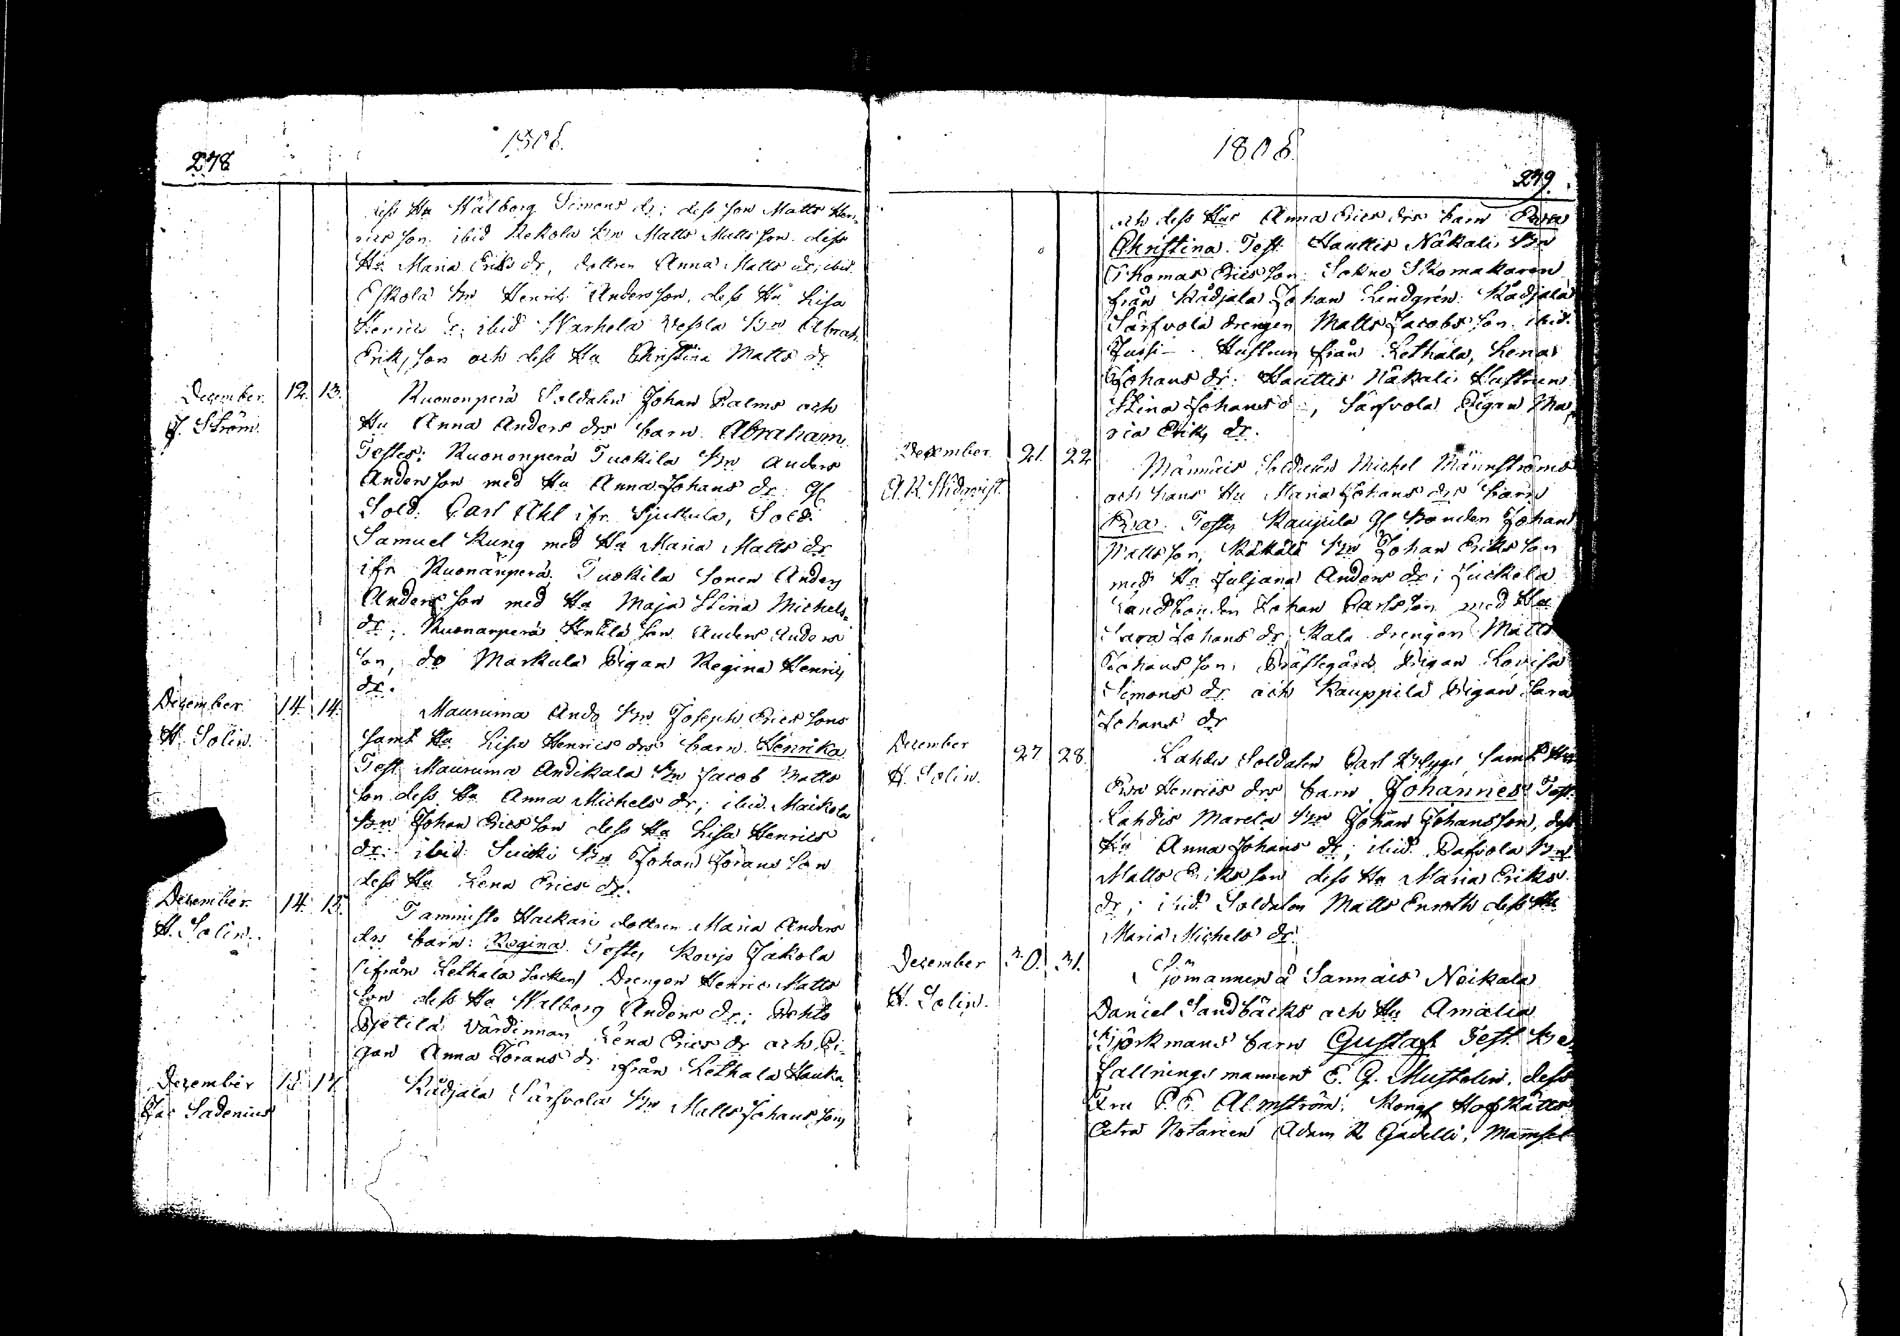 278
1808.
dess Hu Walborg Simons dr; dess son Matts Hen-
rics son ibid Rekola Bn Matts Matts son dess
Hu Maria Eriks dr, dottren Anna Matts dr; ibid.
Eskola Bn Henric Anders son, dess Hu Lisa
Henrics dr; ibid Warhela Bn Abrah.
Eriks son och dess Hu Christina Matts dr
December 12. 13. Ruononperä Soldaten Johan Palms och
J. Ström. Hu Anna Anders drs barn Abraham.
Testes: Ruononperä Tuokila Bn Anders
Anders son med Hu Anna Johans dr; gl.
Sold. Carl Ahl ifr. Sjukula, Sold.
Samuel Kung med Hu Maria Matts dr
ifr Ruonanperä. Tuokila sonen Anders
Anders son med Hu Maja Stina Michels
dr; Ruonanperä Henkilä son Anders Anders
son, do Markula Pigan Regina Henrics
dr.
December 14. 14. Mauruma Ando Bn Joseph Erics sons
H. Solin. samt Hu Lisa Henrics drs barn Henrika
Test. Mauruma Andikala Bn Jacob Matts
son dess Hu Anna Michels dr; ibid. Maikola
Bn Johan Erics son dess Hu Lisa Henrics
dr; ibid. Suicki Bn Johan Jörans son
dess Hu Lena Erics dr.
December 14. 15. Taministo Haikari dottren Maria Anders
H. Solin. drs barn: Regina. Testes Kovjo Jakola
(ifrån Lethala socken) Drengen Henric Matts
son dess Hu Walborg Anders dr;
Pjetilä Värdinnan Lena Erics dr och Pi-
gan Anna Jörans dr ifrån Lethala Hauka.
December 15. 17. Kådjala Särfvola Bn Matts Johans sons
Jac Sadenius
1808.
279.
och dess Hus Anna Erics drs barn Ewa
Christina. Test. Hauttis Näkali Bn
Thomas Erics son: Sokne Skomakaren
från Kådjala Johan Lindgrén: Kådjala
Särfvola drengen Matts Jacobs son ibid.
Jussi- Hustrun från Lethala, Lena
Johans dr: Hauttis Näkali Hustrun
Stina Johans d:, Särfvola Pigan Ma-
ria Eriks dr.
December 21. 22. Männäis Soldaten Michel Männströms
A. R. Widqvist. och hans Hu Maria Johans drs barn
Ewa. Testes Kaupila gl Bonden Johan
Matts son, Käkälä Bn Johan Eriks son
med Hu Juljana Anders dr; Juckola
Landbonden Johan Carls son med Hu
Sara Johans dr, Kala drengen Matts
Johans son, Prästegårds Pigan Lovisa
Simons dr och Kauppila Pigan Sara
Johans dr
December 27. 28. Lahdis Soldaten Carl Flygs samt Hu
H. Solin. Ewa Henrics drs barn Johannes Test.
Lahdis Marela Bn Johan Johans son, dess
Hu Anna Johans dr; ibid. Pafvola Bn
Matts Eriks son dess Hu Maria Eriks
dr; ibid. Soldaten Matts Enroth dess Hu
Maria Michels dr.
December 30. 31. Sjömannen å Sannäis Neikala
H. Solin. Daniel Sandbäcks och Hu Amalia
Björkmans barn Gustaf. Test. Be-
fallningsmannen E. G. Mustelin, dess
Fru P. E. Almström: Kongl Hof Rätts
Extra Notarien Adam R Gadelli, Mamsel